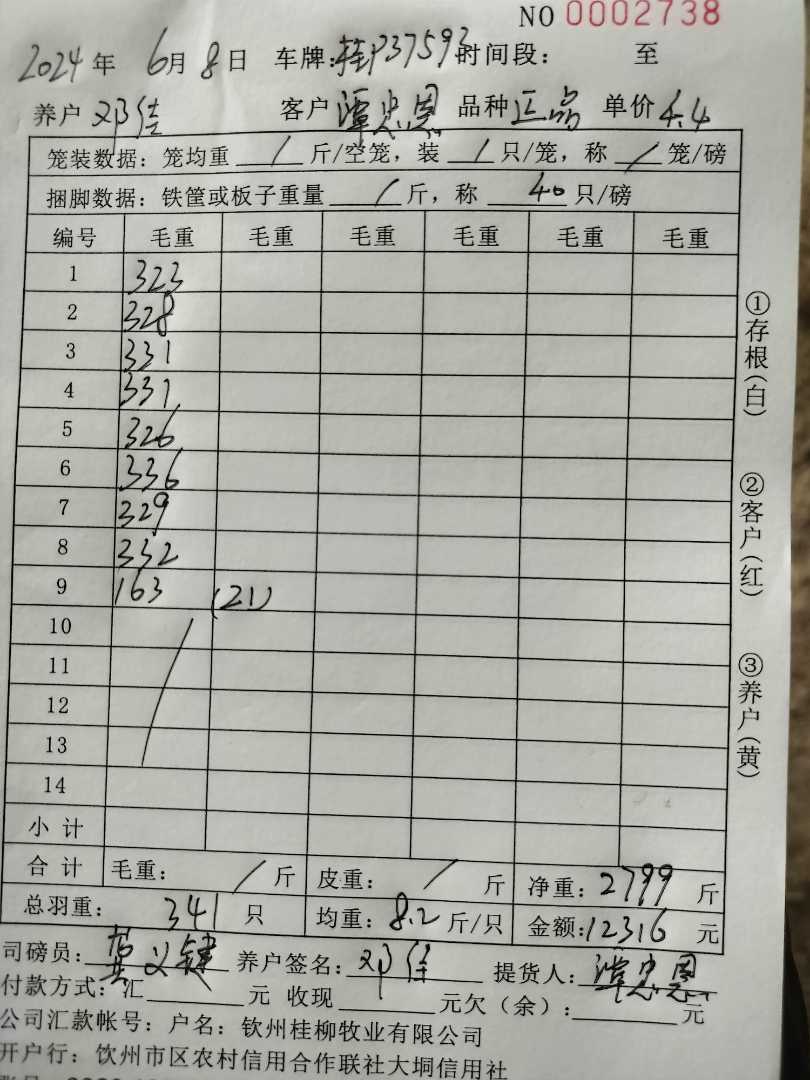 NO 0002738
2024年 6月8日 车牌:桂P37593 时间段: 至
养户 邓佳 客户 潭忠恩 品种 正品 单价 4.4
笼装数据: 笼均重 / 斤/空笼, 装 / 只/笼, 称 / 笼/磅
捆脚数据: 铁筐或板子重量 / 斤, 称 40 只/磅
编号 毛重 毛重 毛重 毛重 毛重 毛重
1 323
2 328
3 331
4 331
5 326
6 336
7 329
8 332
9 163 (21)
10
11
12
13
14
小计
合计 毛重: / 斤 皮重: / 斤 净重: 2799 斤
总羽重: 341 只 均重: 8.2 斤/只 金额: 12316 元
司磅员: 义键 养户签名: 邓佳 提货人: 潭忠恩
付款方式: 汇 元 收现 元欠(余): 元
公司汇款帐号: 户名: 钦州桂柳牧业有限公司
开户行: 钦州市区农村信用合作联社大垌信用社
①存根(白)
②客户(红)
③养户(黄)